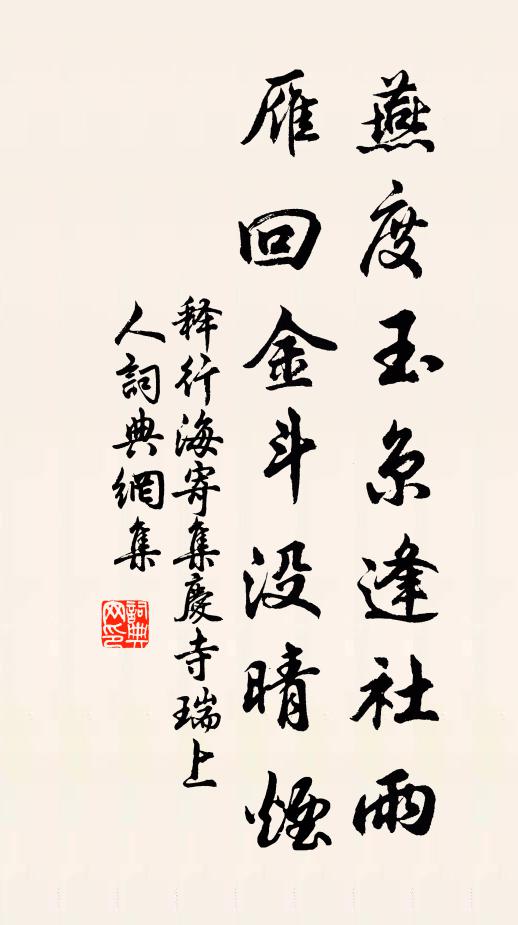 燕度玉京逢社雨
雁回金斗没晴煙
释行海寄集慶寺瑞上
人詞典網集
詞典网印